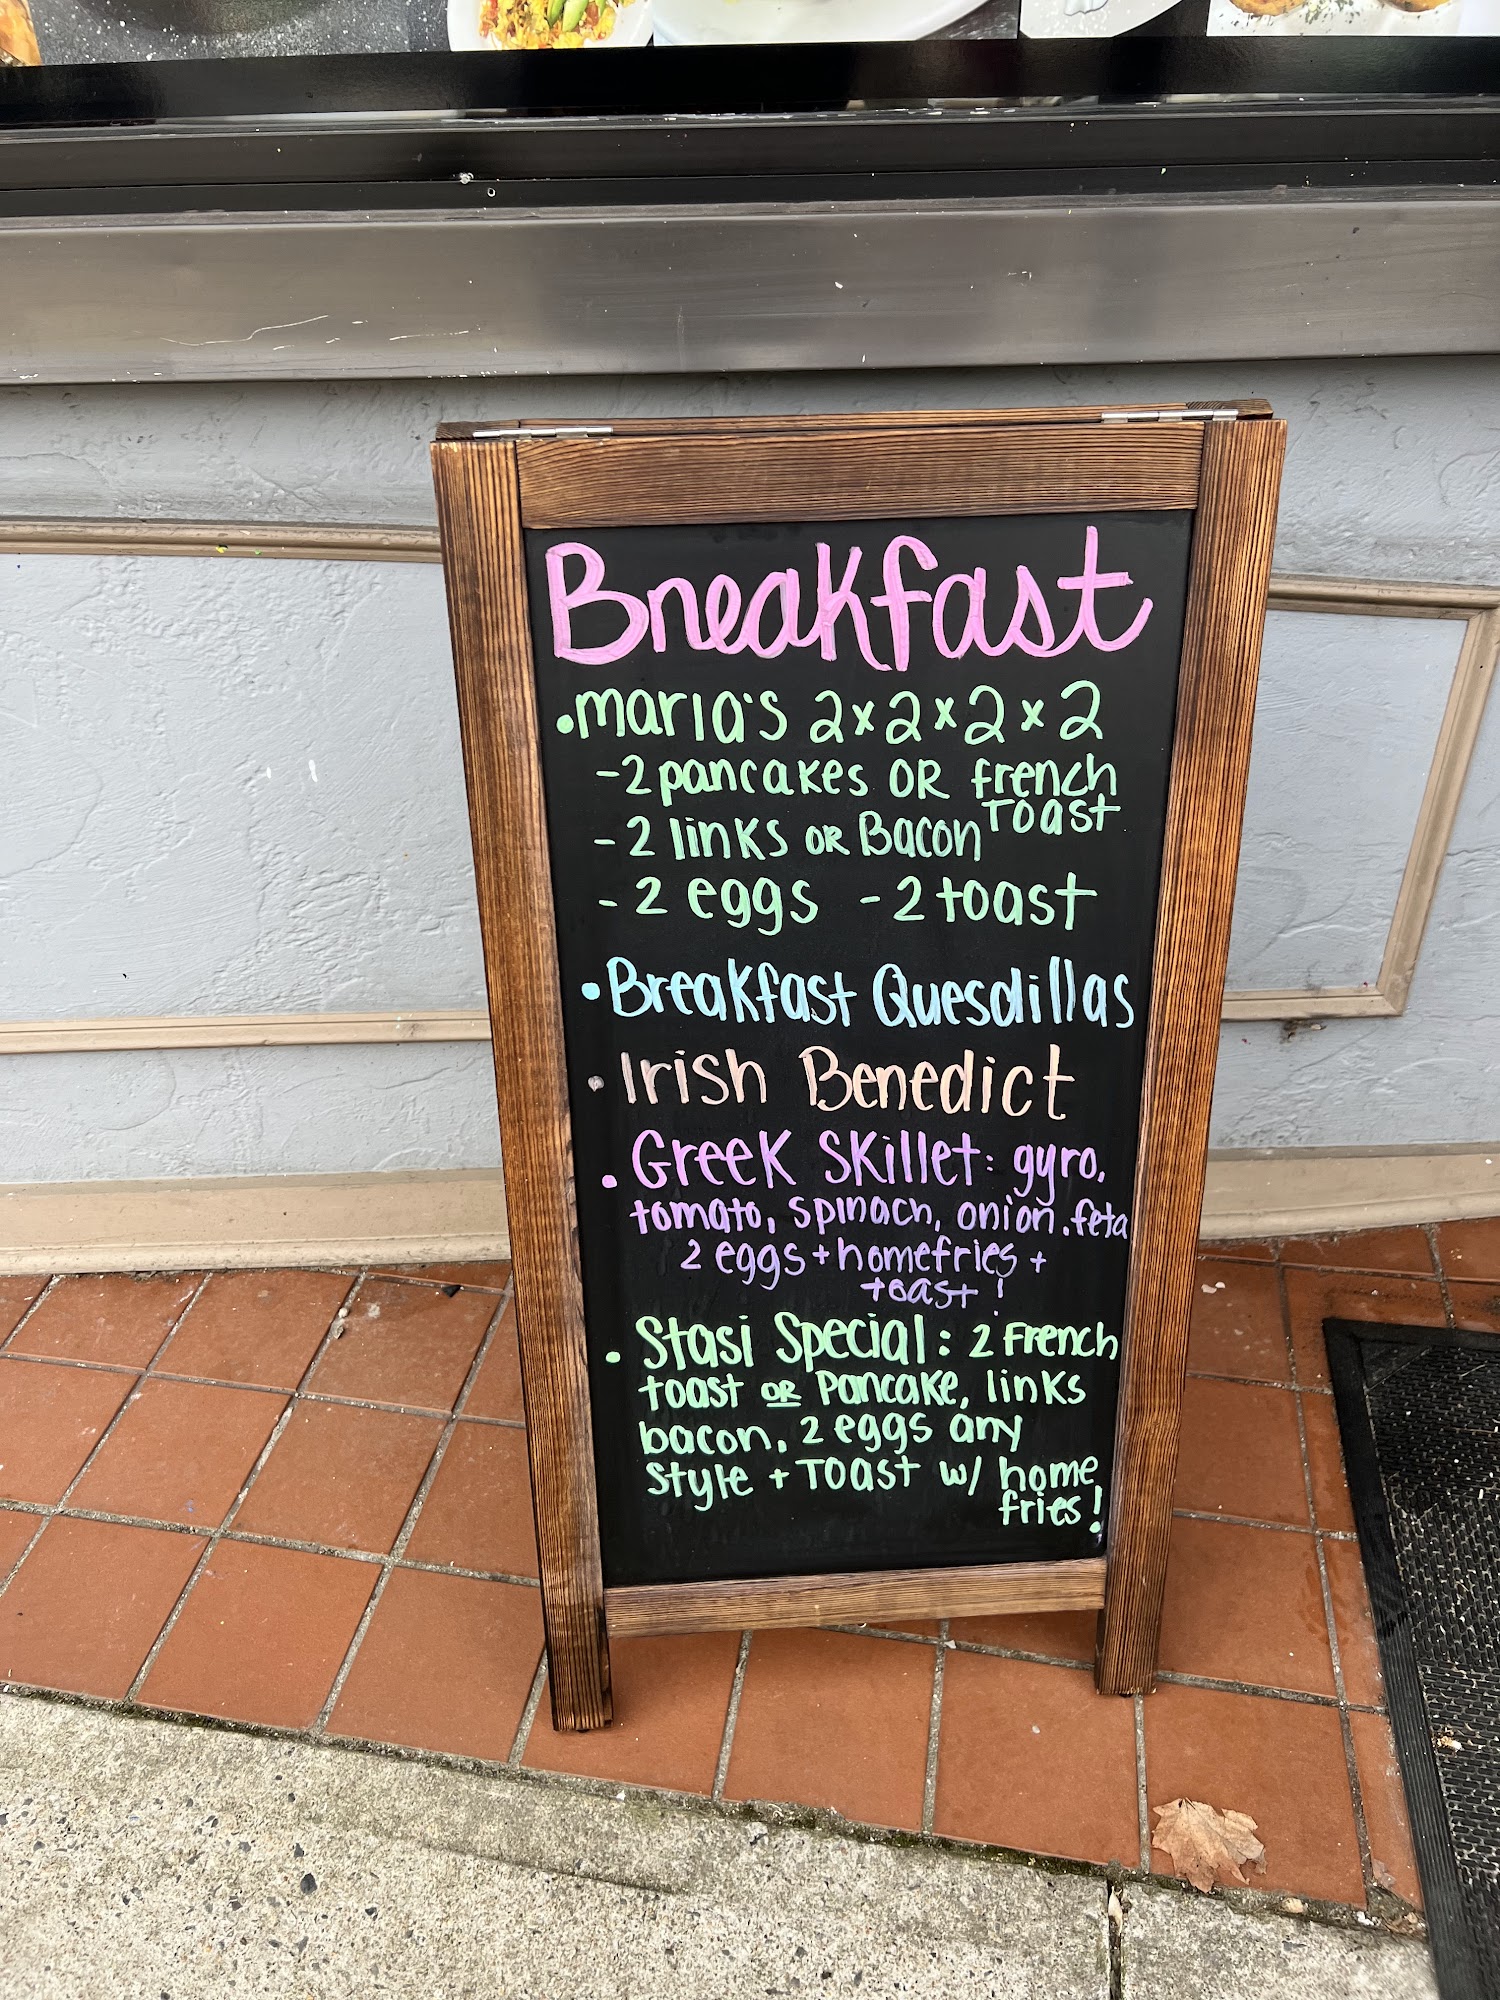 Breakfast
• maria's 2x2x2x2
-2 pancakes OR french
TOAST
-2 links OR Bacon
-2 eggs -2 toast
• Breakfast Quesdillas
• Irish Benedict
• Greek Skillet: gyro,
tomato, spinach, onion, feta
2 eggs + homefries +
toast!
• Stasi Special: 2 French
toast OR pancake, links
bacon, 2 eggs any
style + TOAST w/ home
fries!